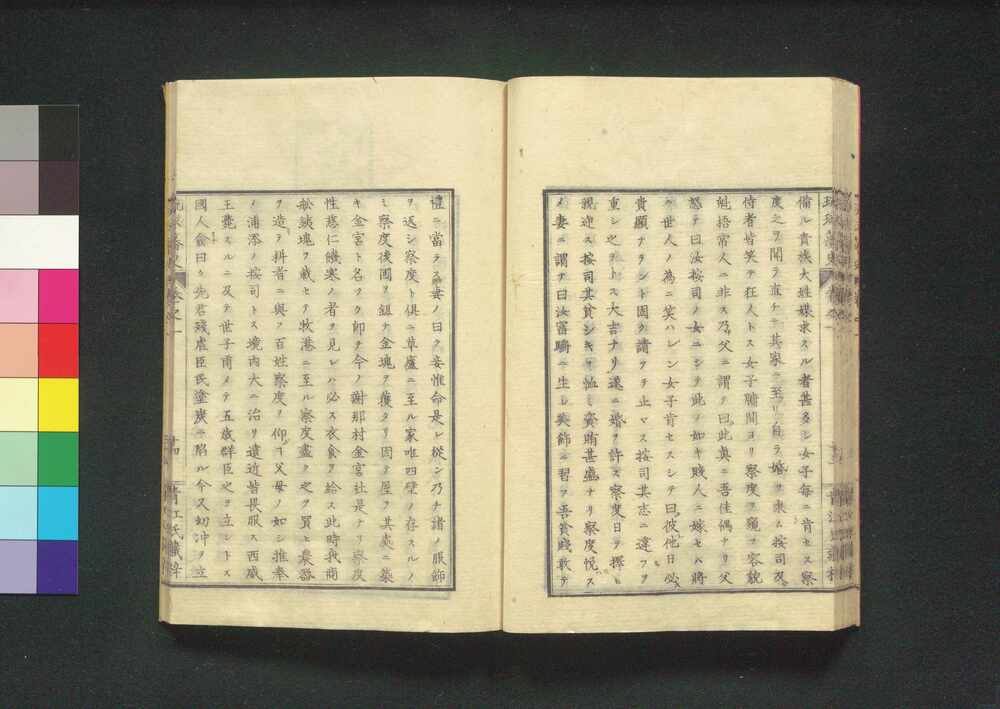 備ル貴族大姓媒求スル者甚多シ女子毎ニ肯セス察
度之ヲ聞ラ直チニ其家ニ至リ自ラ婚ヲ求ム按司及
侍者皆笑テ狂人トス女子牖間ヨリ察度ヲ窺フ容貌
魁梧常人ニ非ス乃父ニ謂テ曰此真ニ吾佳偶ナリ父
怒テ曰汝按司ノ女ニシテ此ノ如キ賤人ニ嫁セハ将
ニ世人ノ為ニ笑ハレン女子肯セスシテ曰彼他日必
貴顕ナラント固ク請フテ止マス按司其志ニ違フヲ
重シ之ヲトス大吉ナリ遂ニ婚ヲ許ス察度日ヲ擇ヒ
親迎ス按司其貧シキヲ恤ミ資賄甚盛ナリ察度悦ス
メ妻ニ謂テ曰汝富驕ニ生レ美飾ニ習フ吾貧賤敢テ
禮ニ當ラス妻ノ曰ク妾惟命是レ從ン乃チ諸ノ服飾
ヲ返シ察度ト倶ニ草廬ニ至ル家唯四壁ノ存スルノ
ミ察度後園ヲ鉏テ金塊ヲ獲タリ因テ屋ヲ其処ニ築
キ金宮ト名ヲク即チ今ノ謝那村金宮社是ナリ察度
性慈仁饑寒ノ者ヲ見レハ必ス衣食ヲ給ス此時我商
舩鉄塊ヲ載セテ牧港ニ至ル察度盡ク之ヲ買ヒ農器
ヲ造リ耕者ニ與フ百姓察度ヲ仰クコ父母ノ如シ推奉
ノ浦添ノ按司トス境内大ニ治リ遠近皆畏服ス西威
王薨スルニ及テ世子甫メテ五歳群臣之ヲ立ントス
國人僉曰ク先君残虐臣民塗炭ニ陷ル今又幼冲ヲ立